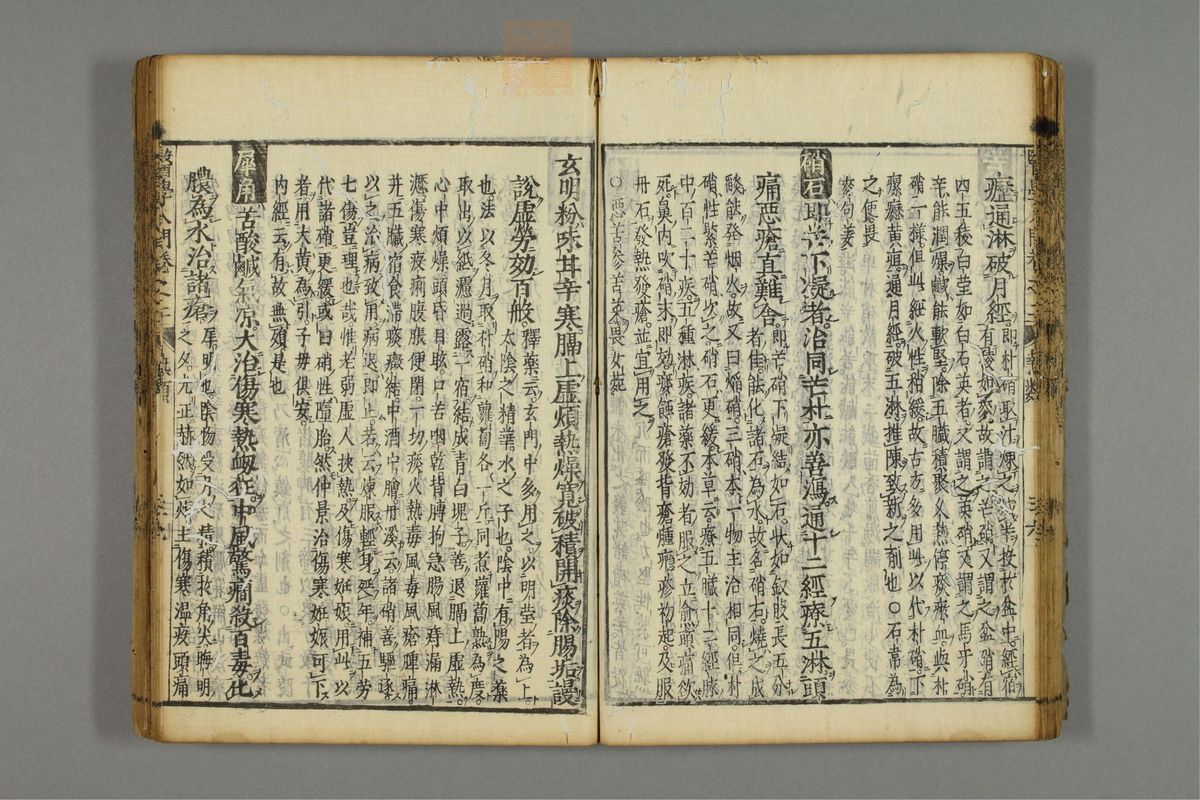 瘿通淋破月經即朴硝取汁煉之減半投於盆中經宿
有
四五稜白瑩如白石英者又謂之英硝又謂之馬牙硝
辛能潤燥鹹能軟堅除五臟積聚久熱停痰瘀血與朴
硝一二樣但此經火性稍緩故古方多用此以代朴硝下
瘰癧黄疸通月經破五淋推陳致新之劑也〇石常為
之使畏麥句姜
硝石即芒下凝者治同芒朴亦善瀉通十二經療五淋頭
痛惡瘡真難舍即芒硝下凝結如石狀如釵股長五分
者佳能化諸石為水故名硝石燒之成
燄能發烟火故又曰焰硝三硝本一物主治相同但朴
硝性緊芒硝次之硝石更緩本草云療五臟十二經脉
中百二十疾五種淋疾諸藥不効者服之立愈頭痛欲
死鼻內吹硝末即効療蝕瘡發背瘡腫癮疹初起及服
丹石發熱發瘡並宜用之
〇惡苦參苦菜畏女菀
玄明粉味甘辛寒膈上虛煩熱燥寬破積開痰除腸垢謾
說虛勞効百般釋藥云玄門中多用之以明堂者為上
太陰之精華水之子也陰中有陽之藥
也法以冬月取朴硝和蘿蔔各一斤同煮蘿蔔熟為度
取出以紙濾過露一宿結成青白塊子善退膈上虛熱
心中煩燥頭昏目眩口苦咽乾背膊拘急腸風痔漏淋
瀝傷寒疫痢腹脹便閉一切痰火熱毒風毒風瘡踵痛
并五臟宿食滯痰癥結中酒中膾丹溪云諸硝善驅逐
以之治病致用病退即上若云煉服輕身延年補五勞
七傷豈理也哉惟老弱虛人挾熱及傷寒妊娠用此以
代諸硝更緩或曰硝性墮胎然仲景治傷寒妊娠可下
者用大黄為引子毋俱安
内經云有故無殞是也
犀角苦酸鹹氣凉大治傷寒熱發狂中風驚癎殺百毒化
膿為水治諸瘡犀明也陰物受月之精積於角尖晦明
之久元正赫然如炷主傷寒温疫頭痛